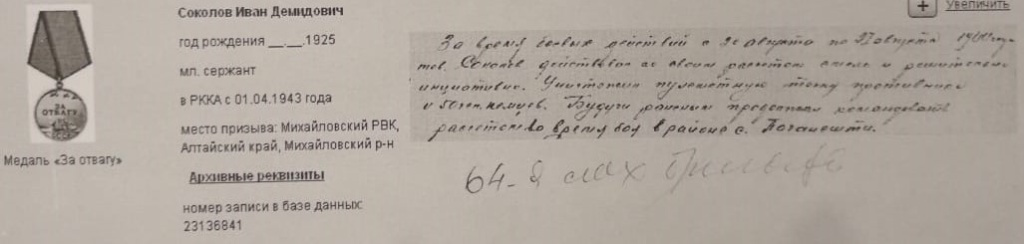 Увеличить
Соколов Иван Демидович
год рождения __.__.1925
мл. сержант
в РККА с 01.04.1943 года
место призыва: Михайловский РВК,
Алтайский край, Михайловский р-н
Архивные реквизиты
номер записи в базе данных:
23136841
ЗА ОТВАГУ
Медаль «За отвагу»
За время боевых действий с 20 августа по августа 1944 года
тов. Соколов действовал со своим расчетом смело и решительно
инициативно. Уничтожил пулеметную точку противника
и немцев. Будучи раненым продолжал командовать
расчетом во время боя в районе с.
64-я мех бригада